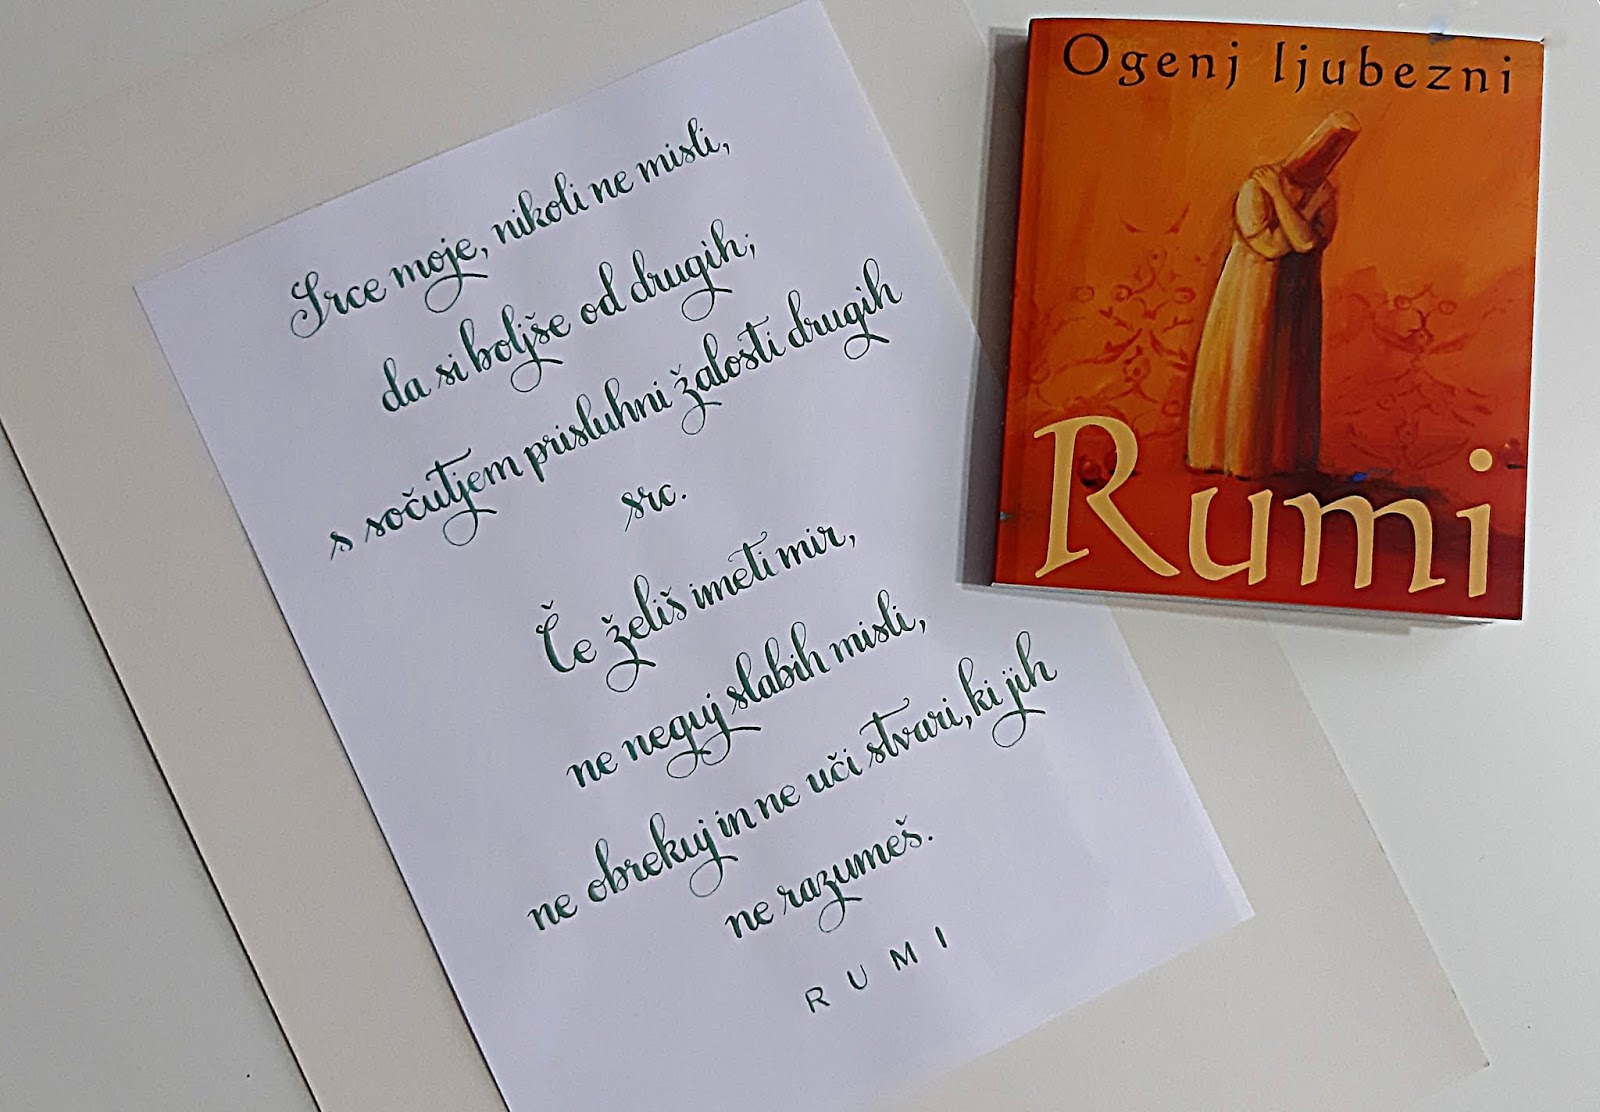 Srce moje, nikoli ne misli,
da si boljše od drugih;
s sočutjem prisluhni žalosti drugih
src.
Če želiš imeti mir,
ne neguj slabih misli,
ne obrekuj in ne uči stvari, ki jih
ne razumeš.
RUMI
Ogenj ljubezni
Rumi